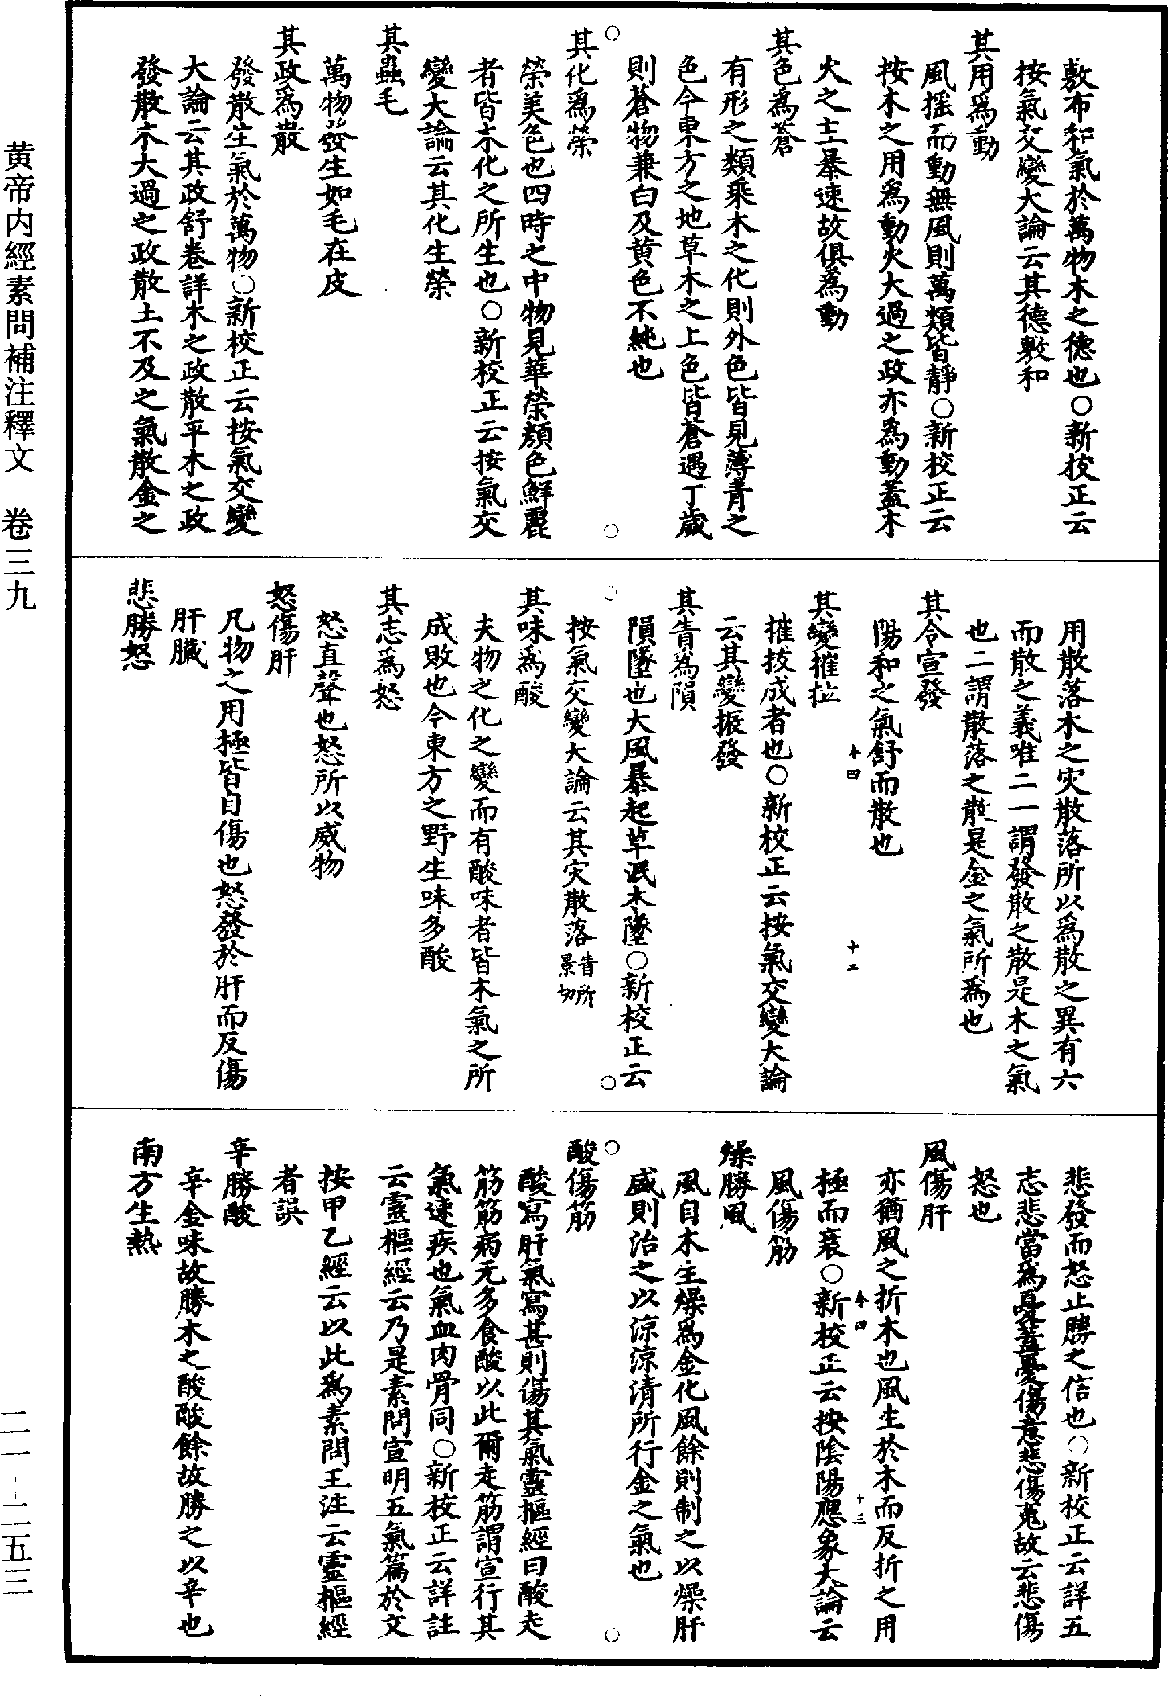 敷布和氣於萬物木之德也○新校正云
按氣交變大論云其德敷和
其用爲動
風搖而動無風則萬類皆靜○新校正云
按木之用爲動火大過之政亦爲動蓋木
火之主暴速故俱爲動
其色爲蒼
有形之類乘木之化則外色皆見薄青之
色今東方之地草木之上色皆蒼遇丁歲
則蒼物兼白及黄色不純也
其化爲榮
榮美色也四時之中物見華榮顏色鮮麗
者皆木化之所生也○新校正云按氣交
變大論云其化生榮
其蟲毛
萬物發生如毛在皮
其政爲散
發散生氣於萬物○新校正云按氣交變
大論云其政舒卷詳木之政散平木之政
發散木大過之政散土不及之氣散金之
用散落木之灾散落所以爲散之異有六
而散之義唯二一謂發散之散是木之氣
也二謂散落之散是金之氣所爲也
其令宣發
陽和之氣舒而散也
本四
十二
其變摧拉
摧拔成者也○新校正云按氣交變大論
云其變振發
其眚爲隕
隕墜也大風暴起草泯木墜○新校正云
按氣交變大論云其灾散落眚所景切
其味爲酸
夫物之化之變而有酸味者皆木氣之所
成敗也今東方之野生味多酸
其志爲怒
怒直聲也怒所以威物
怒傷肝
凡物之用極皆自傷也怒發於肝而反傷
肝臟
悲勝怒
悲發而怒止勝之信也○新校正云詳五
志悲當爲憂蓋憂傷意悲傷䰟故云悲傷
怒也
風傷肝
亦猶風之折木也風生於木而反折之用
極而衰○新校正云按陰陽應象大論云
風傷筋
本四
十三
燥勝風
風自木主燥爲金化風餘則制之以燥肝
盛則治之以涼涼清所行金之氣也
酸傷筋
酸寫肝氣寫甚則傷其氣靈樞經曰酸走
筋筋病无多食酸以此爾走筋謂宣行其
氣速疾也氣血肉骨同○新校正云詳註
云靈樞經云乃是素問宣明五氣篇於文
按甲乙經云以此爲素問王注云靈樞經
者誤
辛勝酸
辛金味故勝木之酸酸餘故勝之以辛也
南方生熱
黄帝内經素問補注釋文　卷三九
二一-二五三